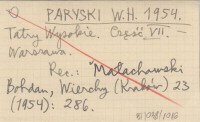 PARYSKI W.H. 1954.
Tatry Wysokie. Część VII. –
Warszawa.
Rec.: Małachowski
Bohdan, Wierchy (Kraków) 23
(1954): 286.